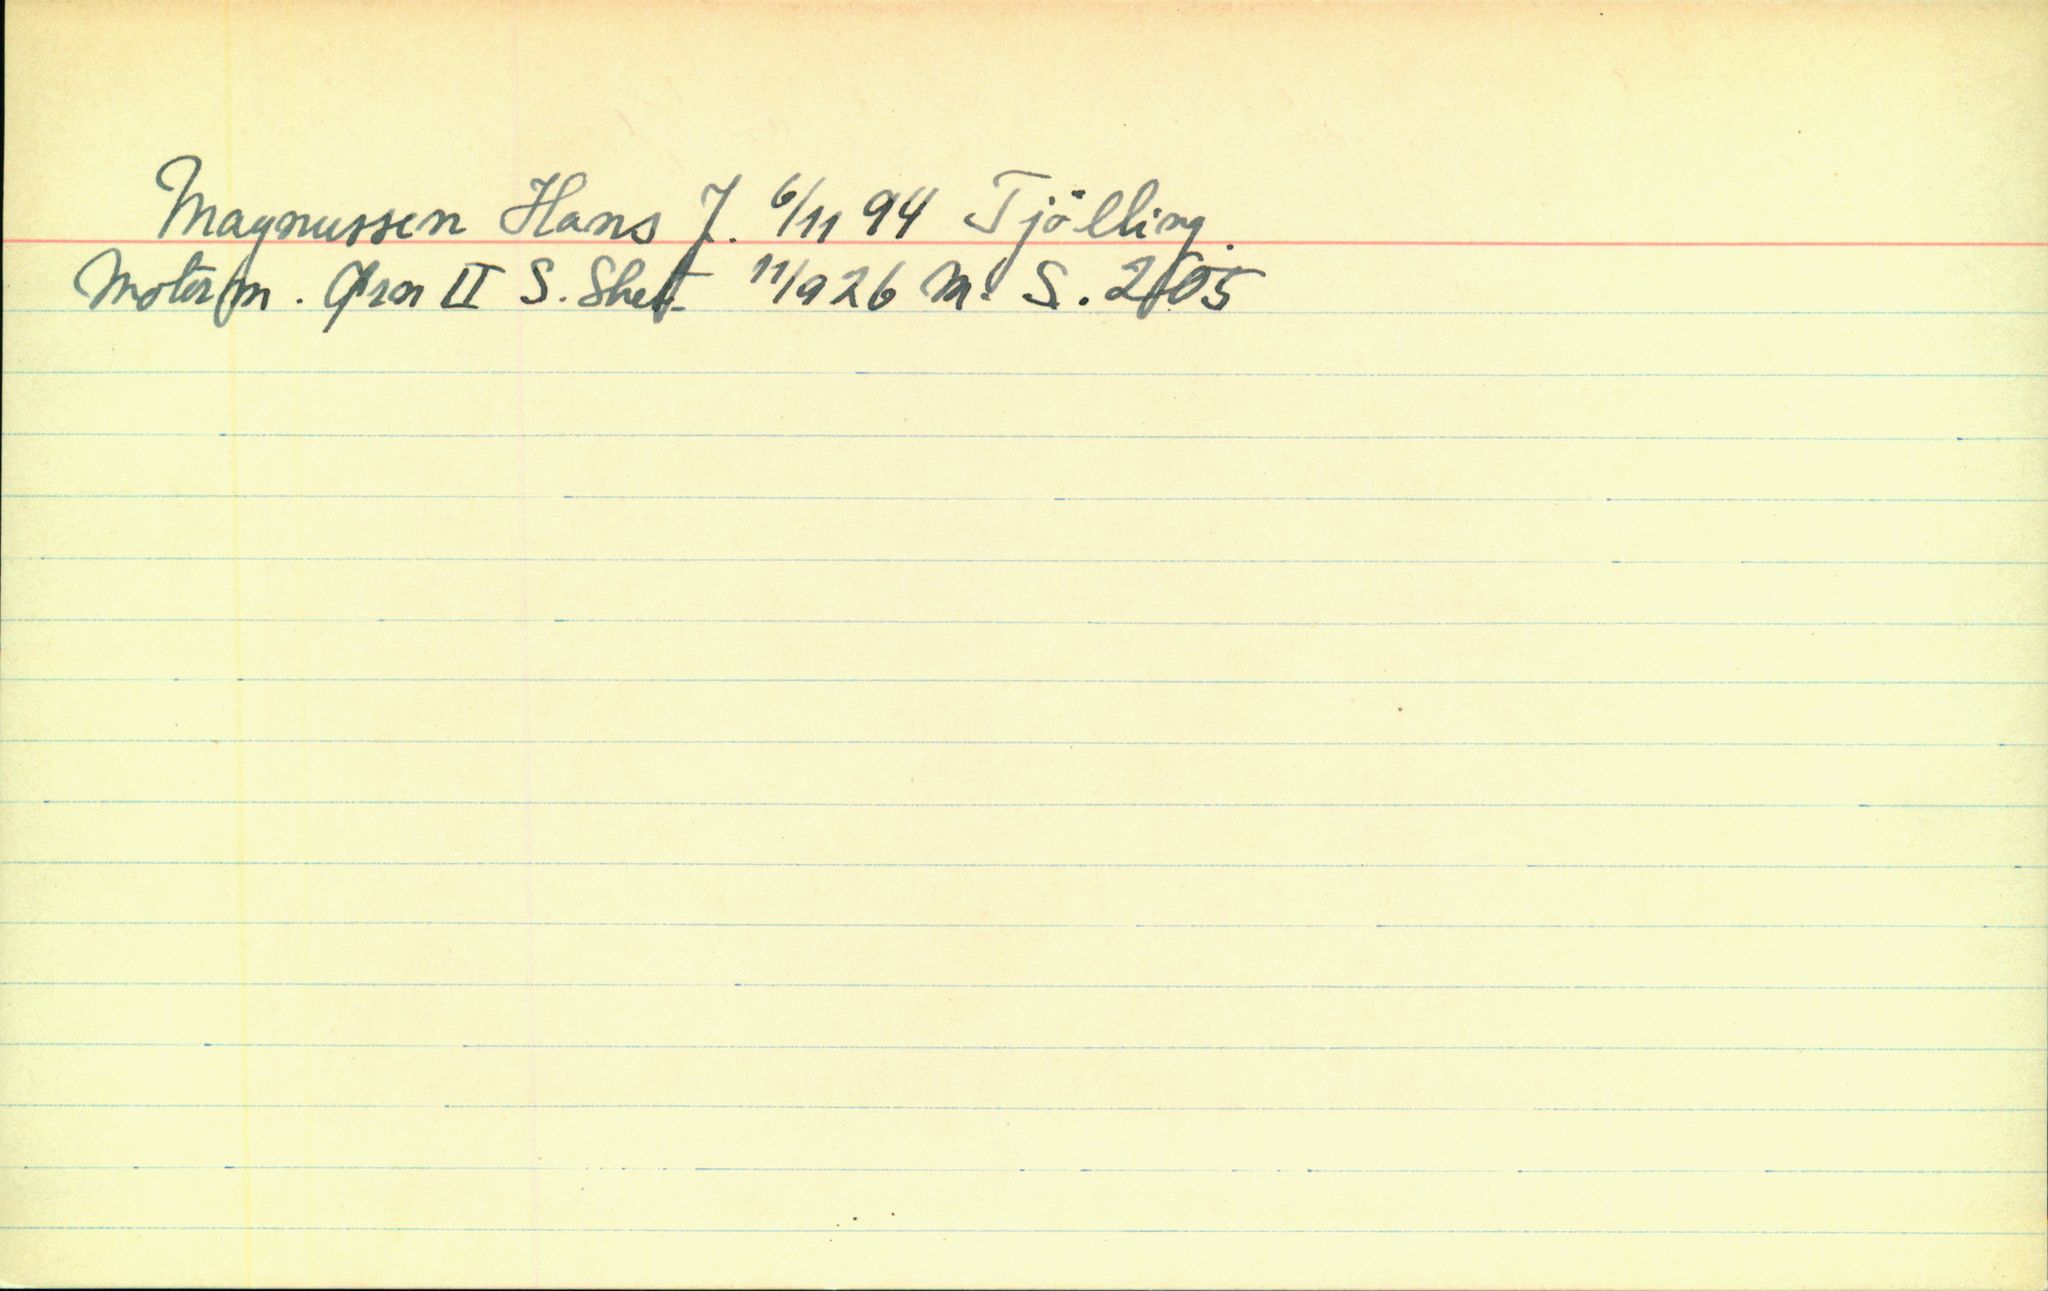 Magnussen Hans J. 6/11 94 Tjölling.
Motorm. Ørn II S. Shet. 11/9 26 M. S. 205